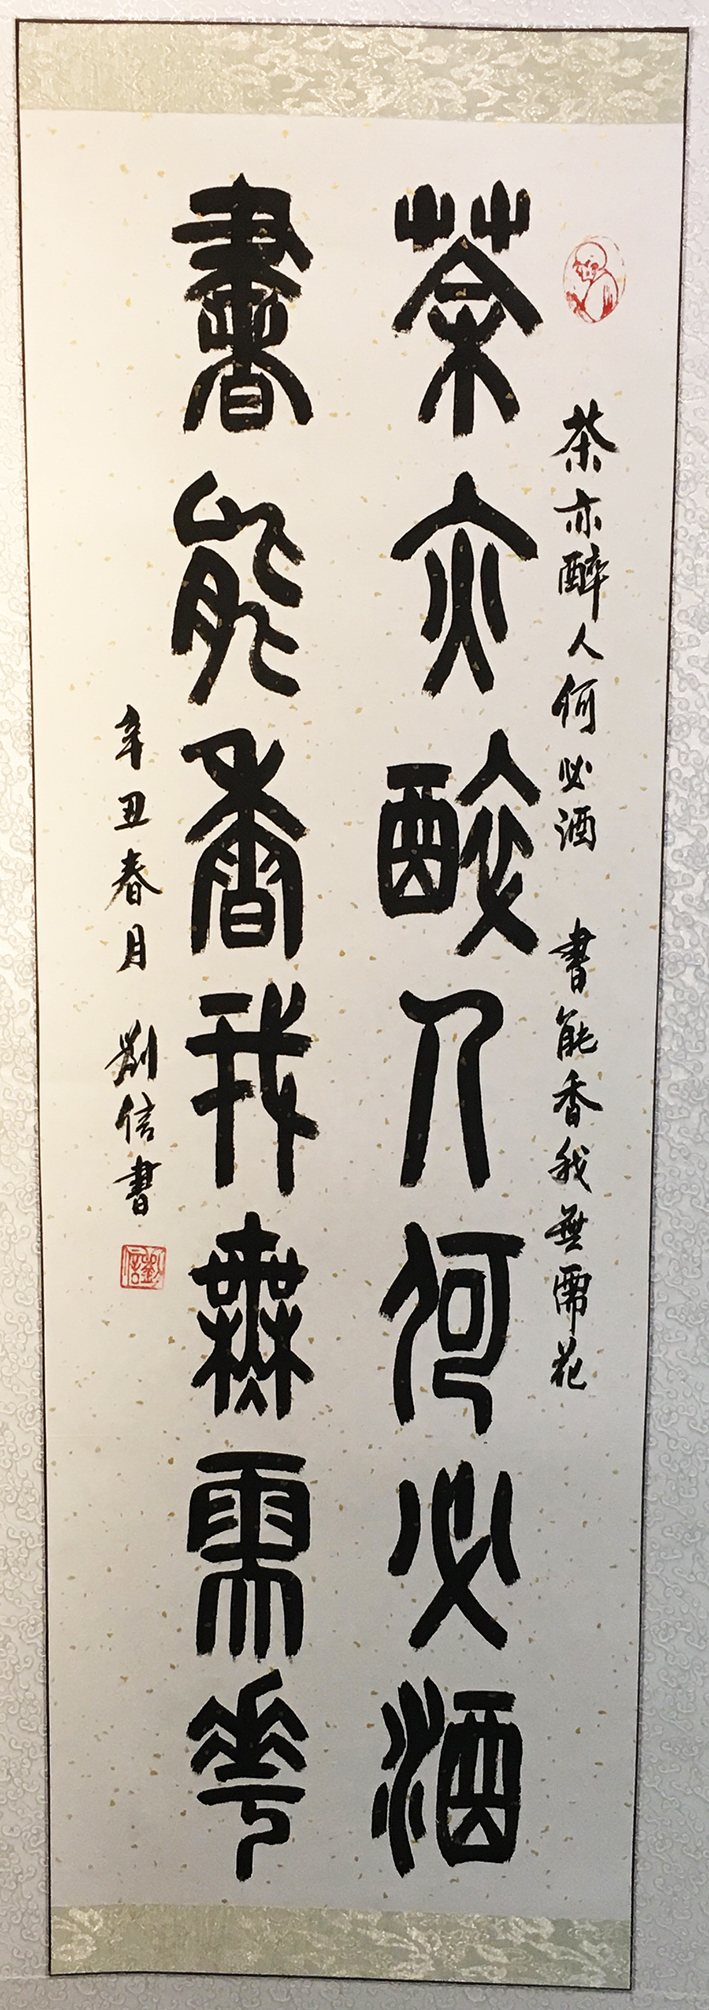 茶亦醉人何必酒 書能香我無需花
茶亦醉人何必酒
書能香我無需花
辛丑春月 劉信書
劉信